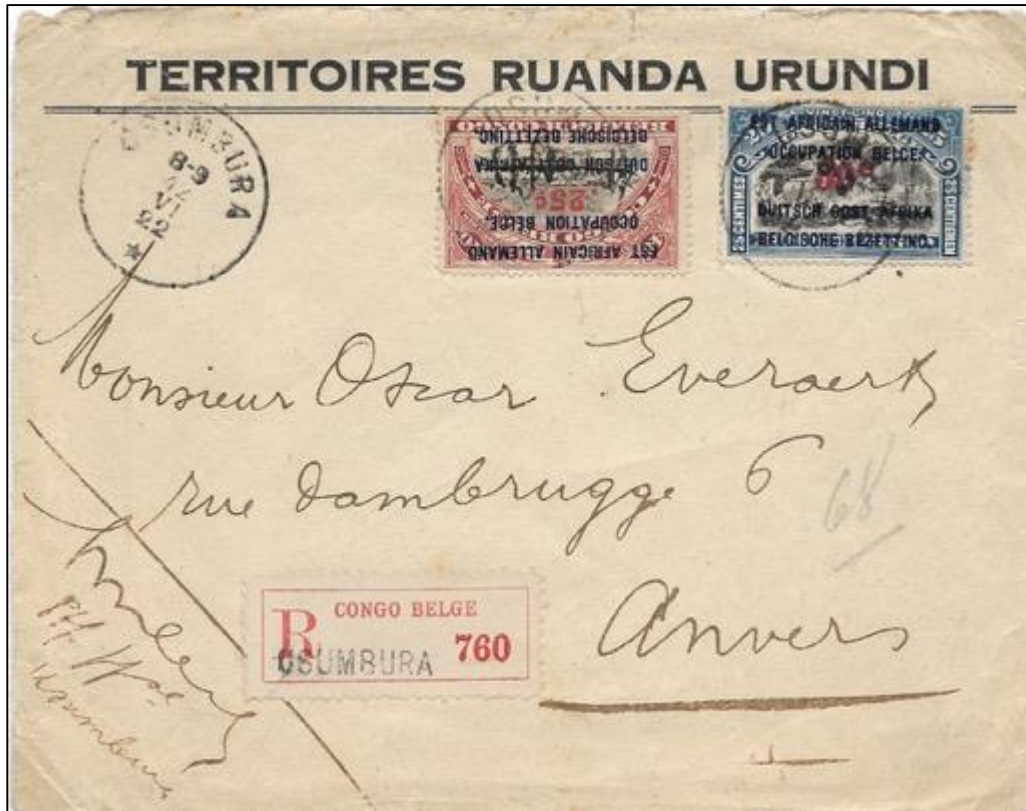 TERRITOIRES RUANDA URUNDI
USUMBURA
8-9
VI
22
EST AFRICAIN ALLEMAND
OCCUPATION BELGE.
25c
DUITSCH OOST AFRIKA
BELGISCHE BEZETTING
EST AFRICAIN ALLEMAND
OCCUPATION BELGE.
DUITSCH OOST AFRIKA
BELGISCHE BEZETTING.
25 CENTIMES
Monsieur Oscar Everaerts
rue Dambrugge 6
68
Anvers
CONGO BELGE
R
760
USUMBURA
Usumbura